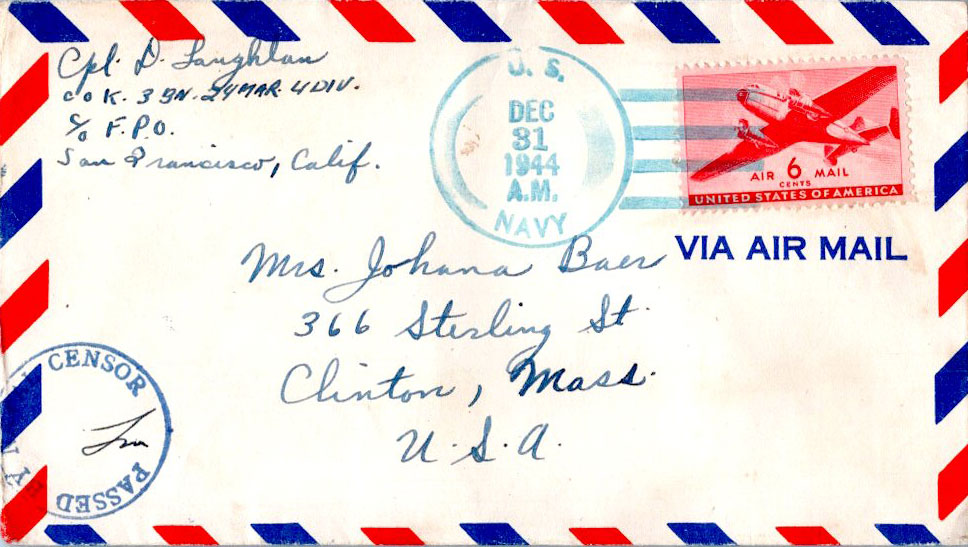 Cpl. D. Laughlan
Co K. 3 BN. 24 MAR. 4 DIV.
c/o F.P.O.
San Francisco, Calif.
U. S.
DEC
31
1944
A.M.
NAVY
AIR 6 MAIL
CENTS
UNITED STATES OF AMERICA
VIA AIR MAIL
Mrs. Johana Baer
366 Sterling St.
Clinton, Mass.
U.S.A.
CENSOR
PASSED